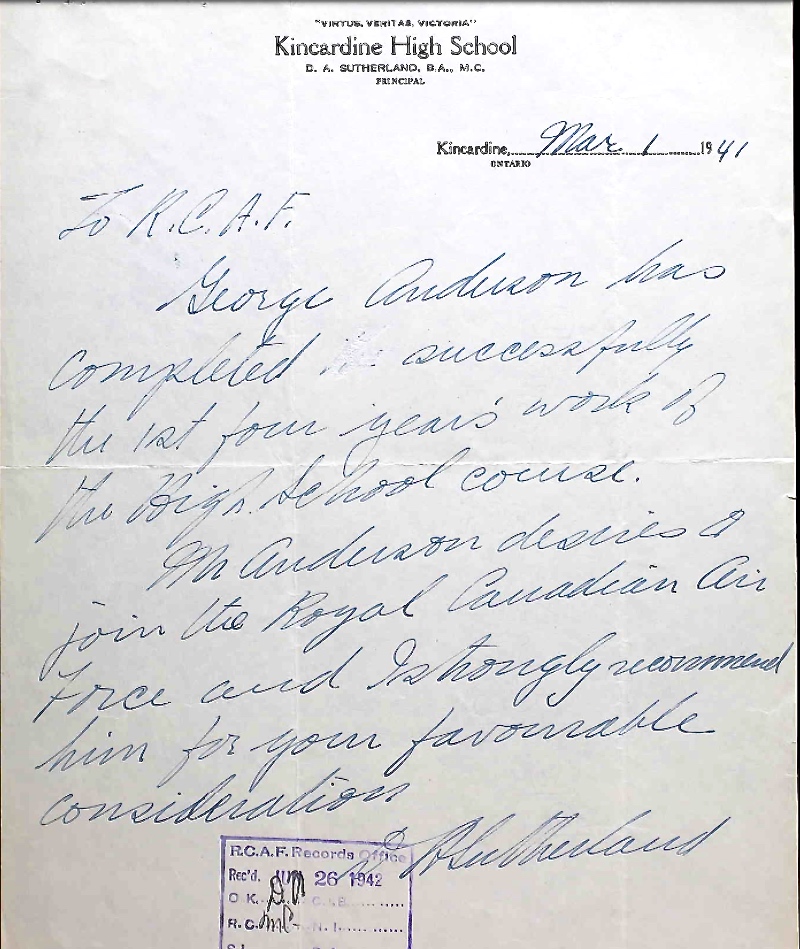 "VIRTUS, VERITAS, VICTORIA"
Kincardine High School
D. A. SUTHERLAND, B.A., M.C.
PRINCIPAL
Kincardine, Mar. 1 1941
ONTARIO
To R.C.A.F.
George Anderson has
completed successfully
the 1st four years' work of
the High School course.
Mr Anderson desires to
join the Royal Canadian Air
Force and I strongly recommend
him for your favourable
consideration
D A Sutherland
R.C.A.F. Records Office
Rec'd. 26 1942
O.K. C.I.B.
R.C. N.I.